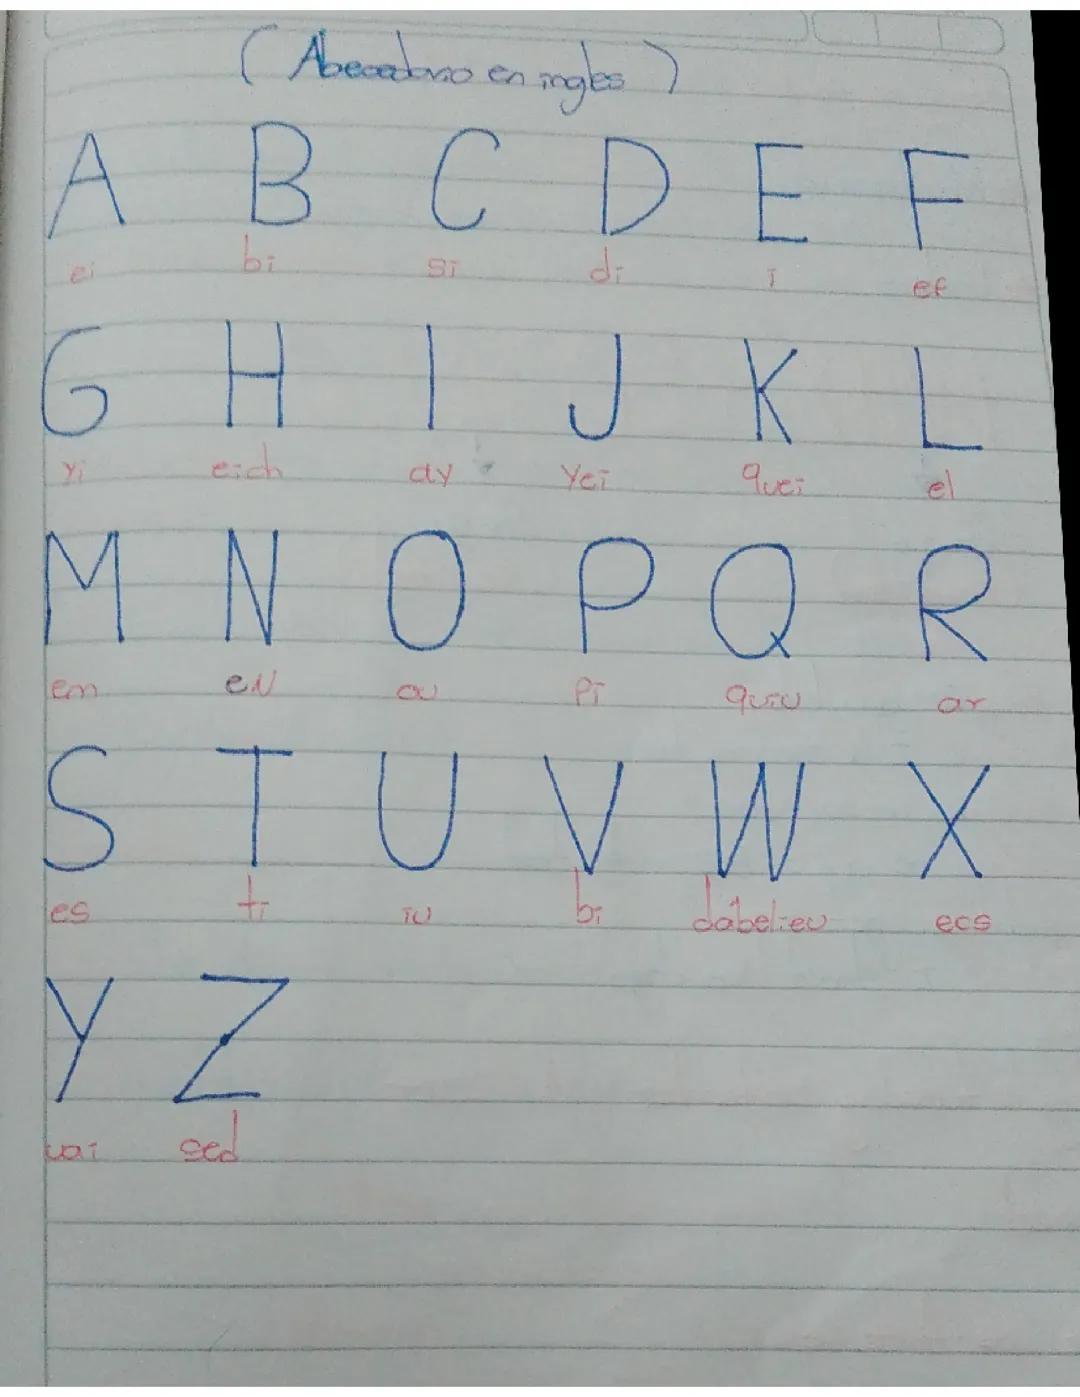 ( Abecedario en ingles )
A B C D E F
ei bi si di i ef
G H I J K L
yi eich ay Yei quei el
M N O P Q R
em eN ou Pi quiu ar
S T U V W X
es ti iu bi dábelieu ecs
Y Z
uai sed